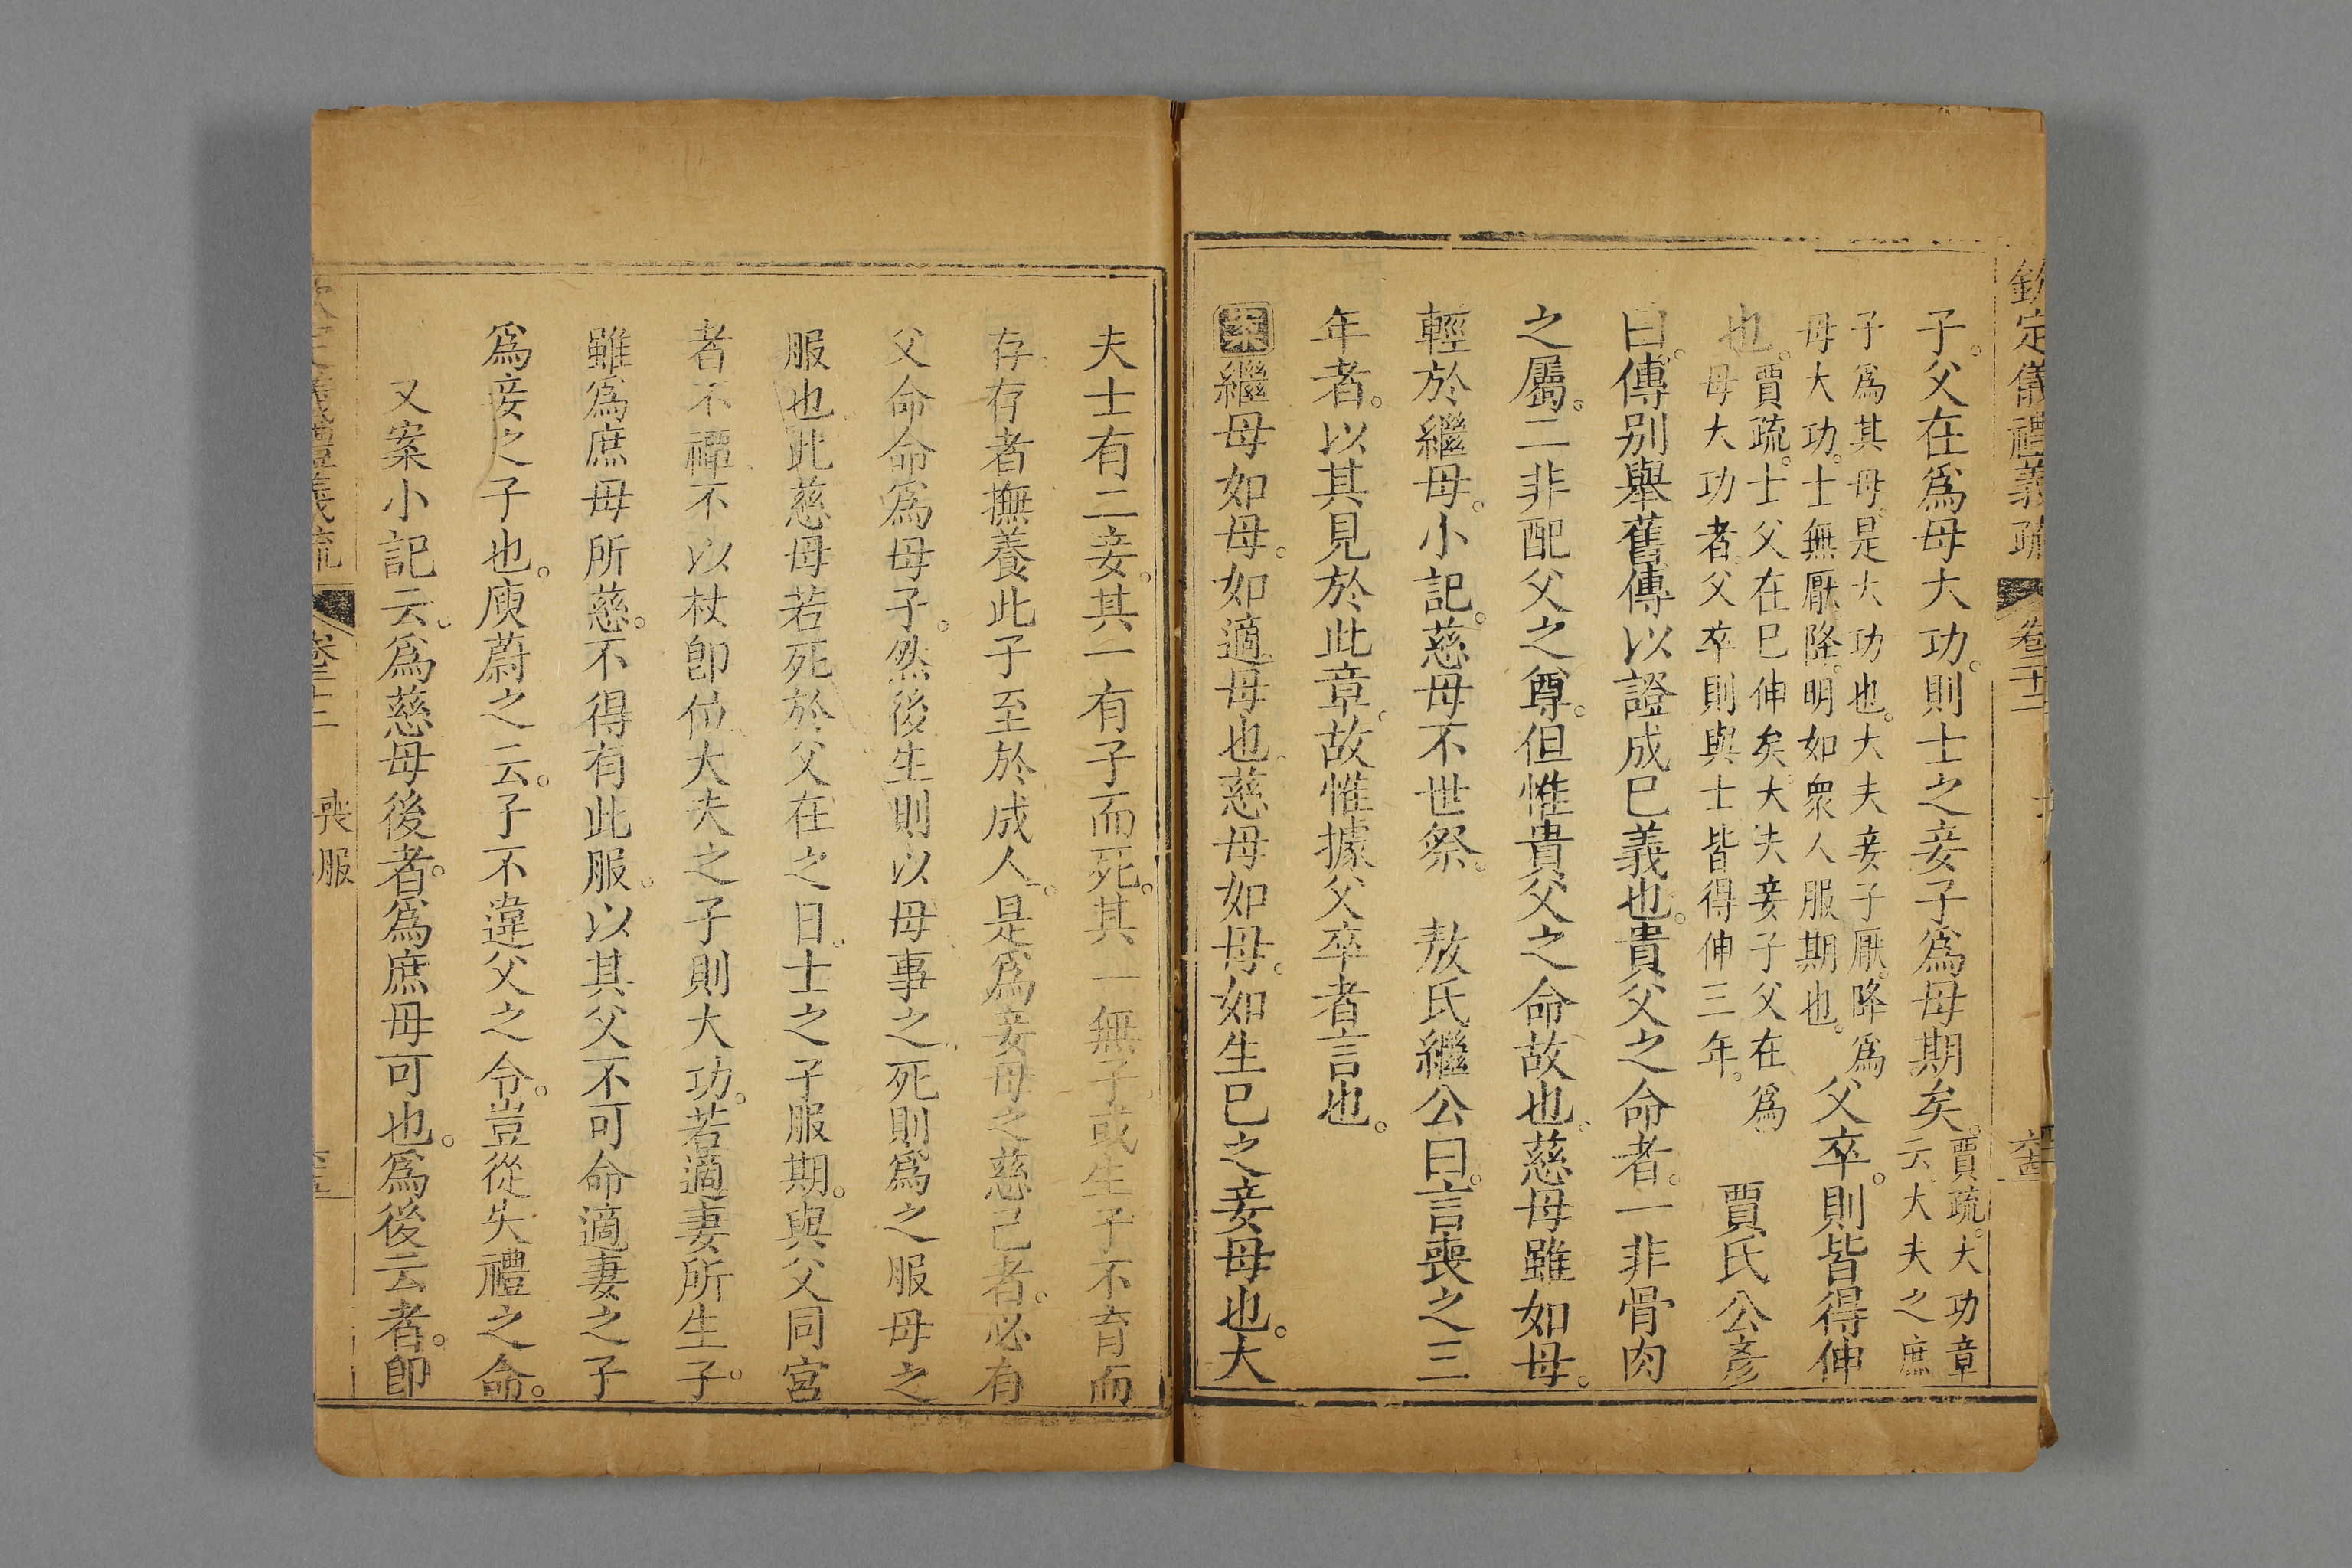 欽定儀禮義疏 卷二十二 六十四
子。父在爲母大功。則士之妾子爲母期矣。賈疏。大功章
云。大夫之庶
子爲其母。是大功也。大夫妾子厭降爲
母大功。士無厭降。明如衆人服期也。父卒。則皆得伸
也。賈疏。士父在巳伸矣。大夫妾子父在爲
母大功者。父卒則與士皆得伸三年。 賈氏公彥
曰。傳别舉舊傳以證成巳義也。貴父之命者。一非骨肉
之屬。二非配父之尊。但惟貴父之命故也。慈母雖如母。
輕於繼母。小記。慈母不世祭。 敖氏繼公曰。言喪之三
年者。以其見於此章。故惟據父卒者言也。
案繼母如母。如適母也。慈母如母。如生巳之妾母也。大
夫士有二妾。其一有子而死。其一無子或生子不育而
存。存者撫養此子至於成人。是爲妾母之慈己者。必有
父命命爲母子。然後生則以母事之。死則爲之服母之
服也。此慈母若死於父在之日。士之子服期。與父同宮
者不禫。不以杖卽位。大夫之子則大功。若適妻所生子。
雖爲庶母所慈。不得有此服。以其父不可命適妻之子
爲妾之子也。庾蔚之云。子不違父之令。豈從失禮之命。
又案小記云。爲慈母後者。爲庶母可也。爲後云者。卽
喪服